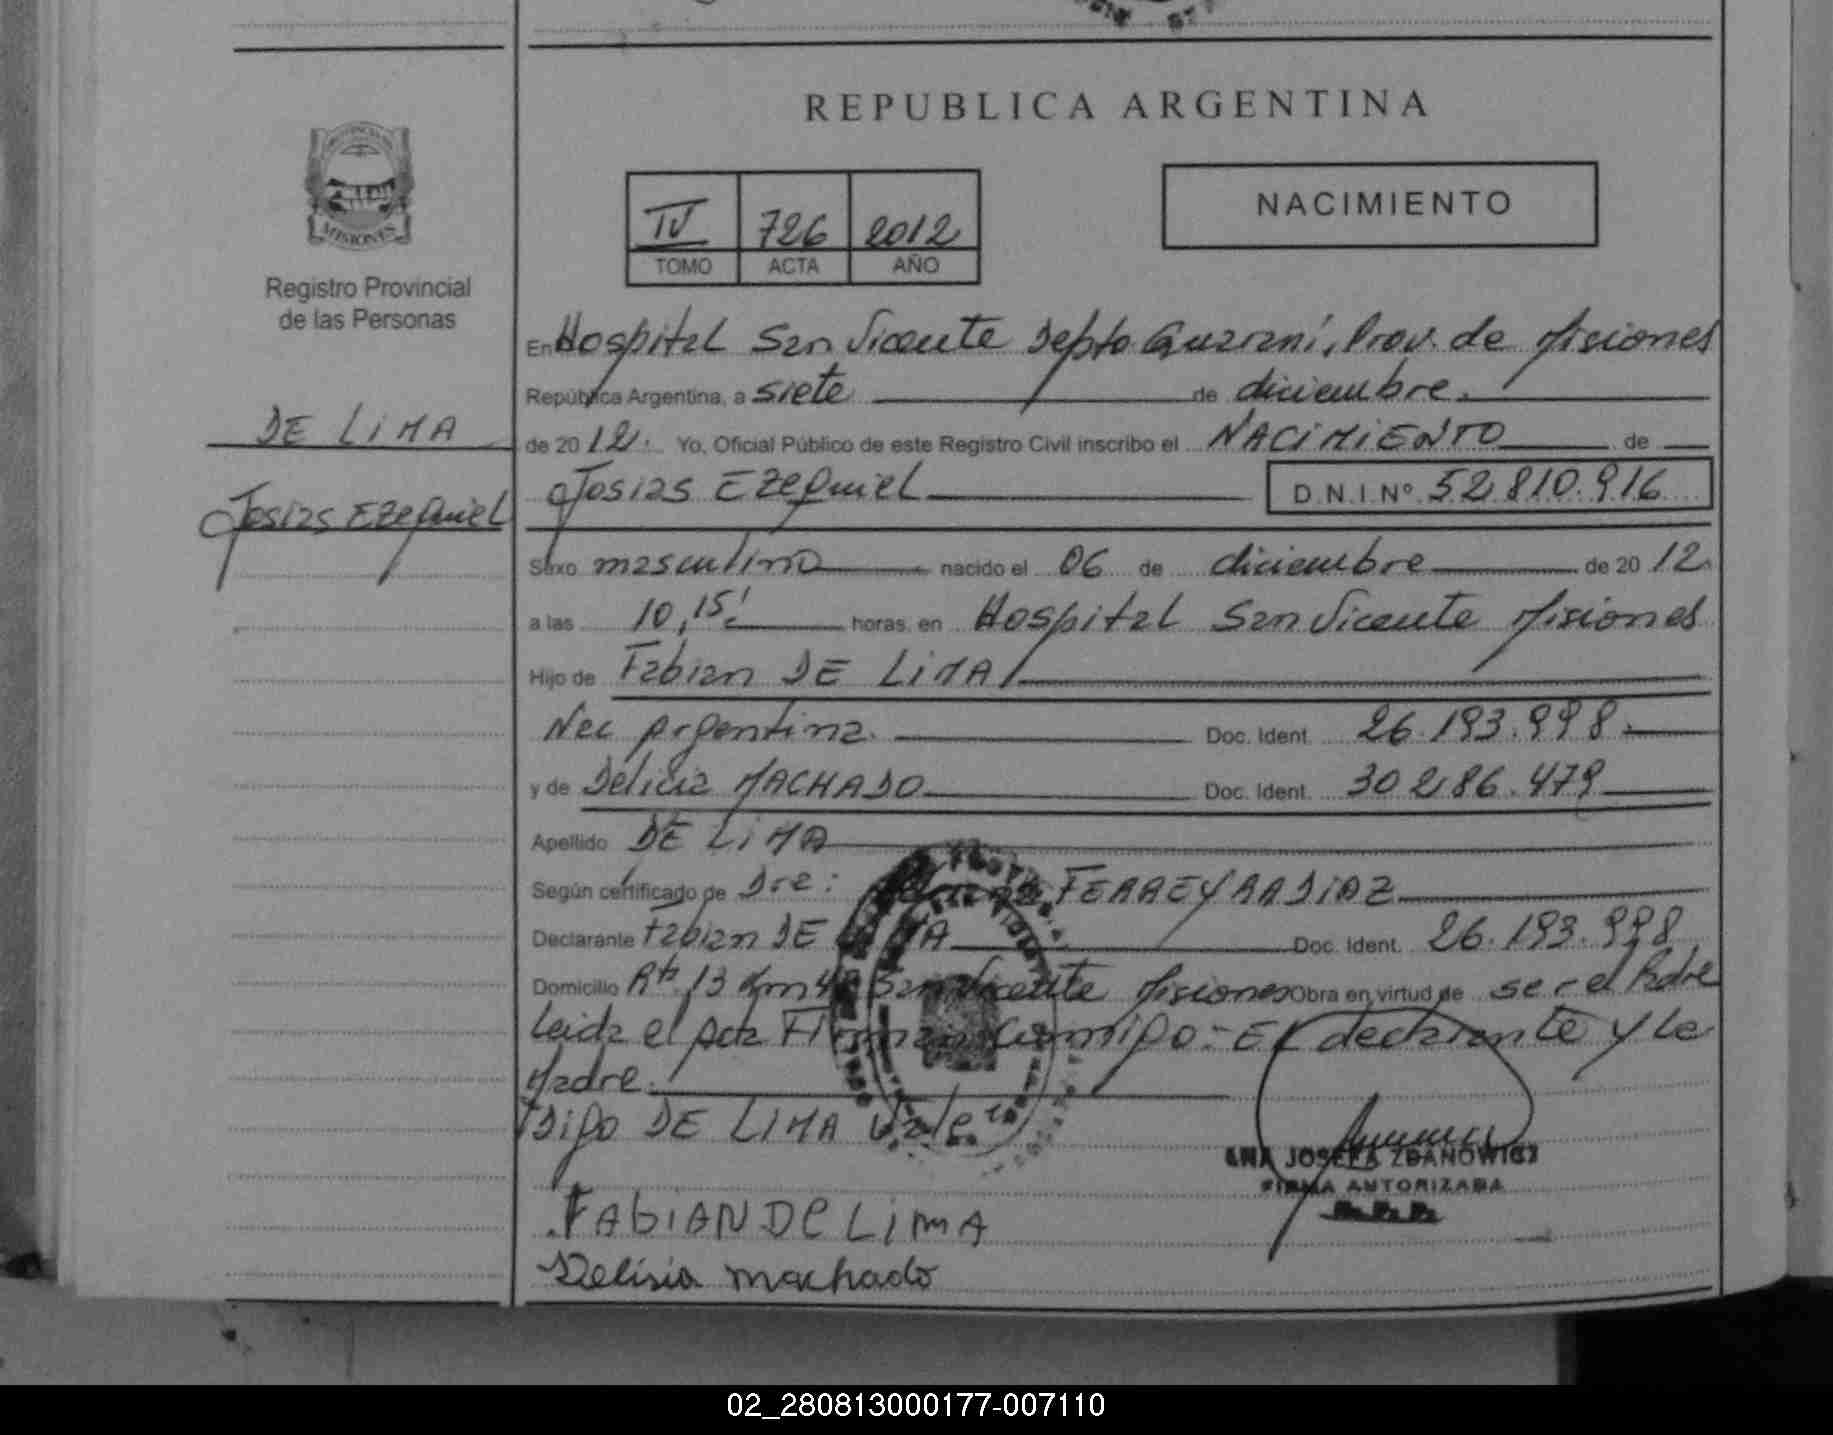 REPUBLICA ARGENTINA
MISIONES
Registro Provincial
de las Personas
DE LIMA
Josias Ezequiel
IV 726 2012
TOMO ACTA AÑO
NACIMIENTO
En Hospital San Vicente Depto Guarani, Prov. de Misiones
República Argentina, a siete de diciembre.
de 2012. Yo, Oficial Público de este Registro Civil inscribo el NACIMIENTO de
Josias Ezequiel D.N.I Nº 52.810.916
Sexo masculino nacido el 06 de diciembre de 2012.
a las 10,15' horas, en Hospital San Vicente Misiones
Hijo de Fabian DE LIMA
Nac Argentina. Doc. Ident. 26.193.998.
y de Delicia MACHADO Doc. Ident. 30286.479
Apellido DE LIMA
Según certificado de Dra: FERREYRA DIAZ
Declarante Fabian DE LIMA Doc. Ident. 26.193.998
Domicilio Rta 13 Km San Vicente Misiones Obra en virtud de ser el Padre
Leida el Acta Firman Conmigo: El declarante y la
Madre.
Digo DE LIMA Vale.
FABIAN DE LIMA
Delisia machado
ANA JOSEFA ZDANOWICZ
FIRMA AUTORIZADA
R. P. P.
02_280813000177-007110